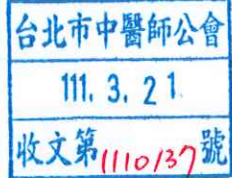 台北市中醫師公會
111. 3. 21.
收文第1110137號